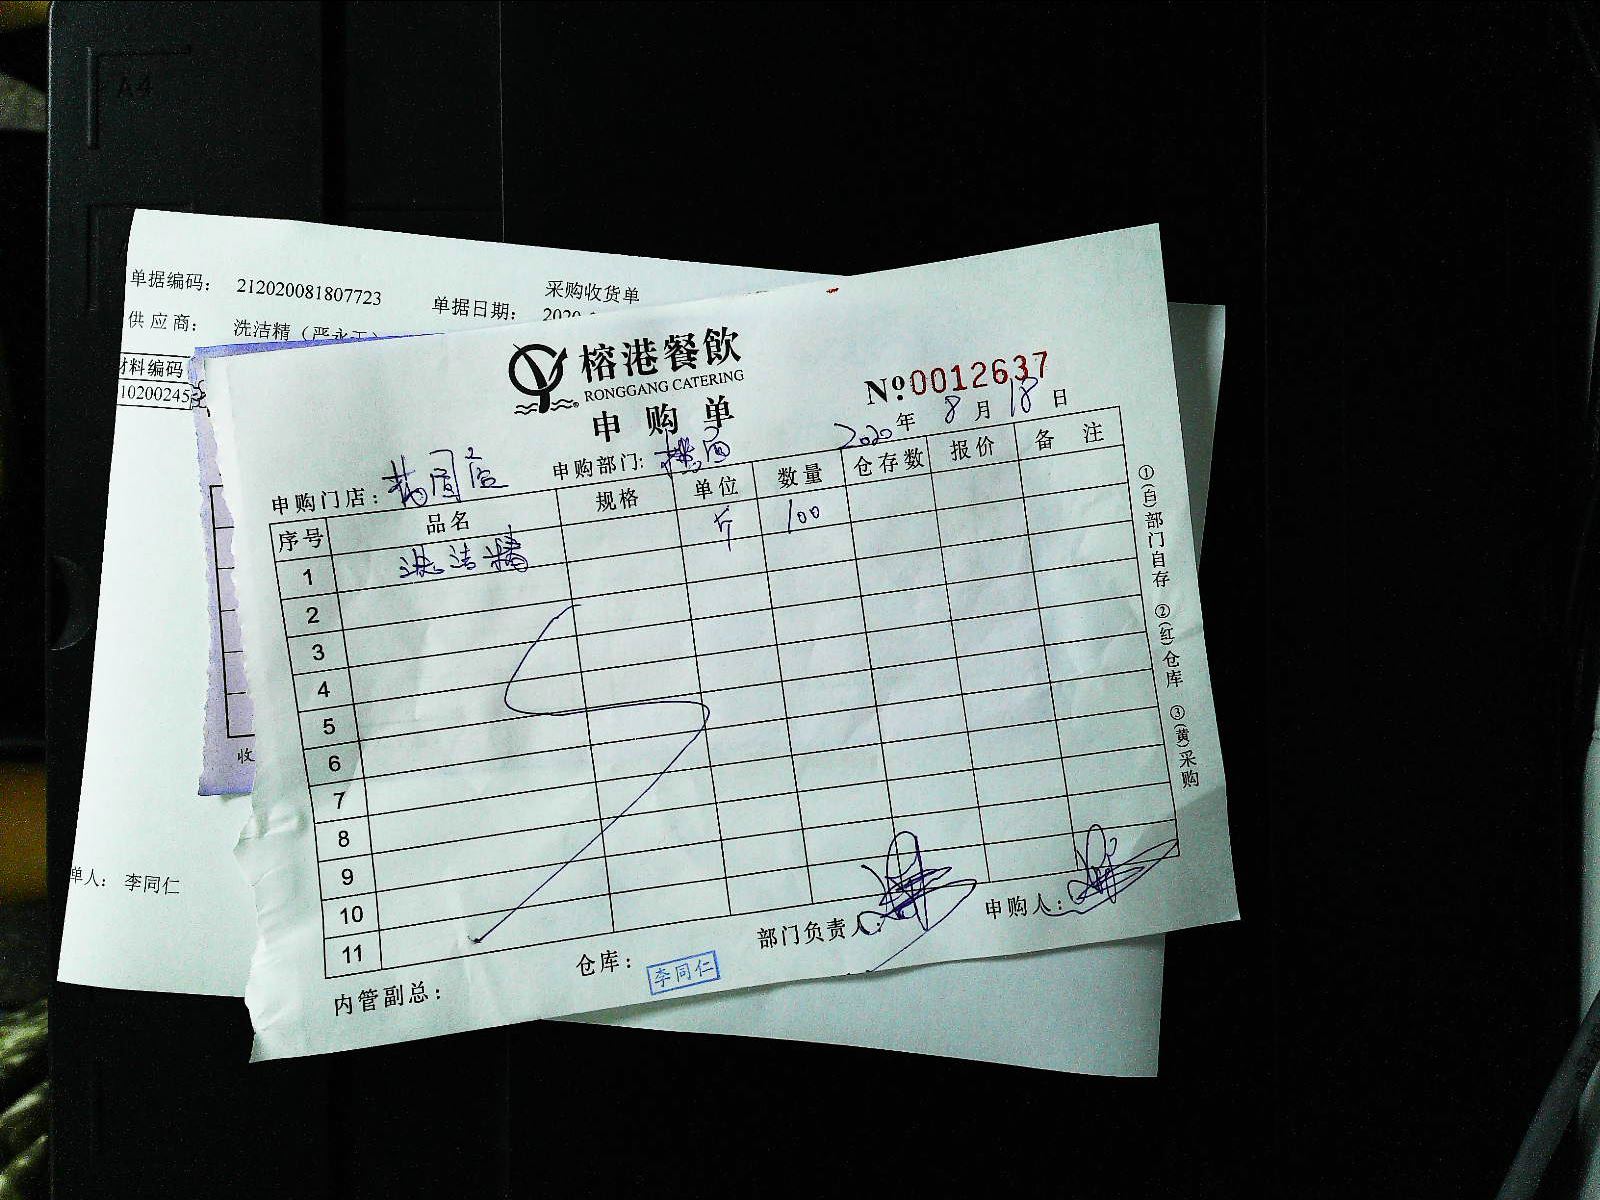 A4
单据编码: 212020081807723
采购收货单
单据日期: 2020
供应商: 洗洁精
材料编码
10200245
榕港餐飲
RONGGANG CATERING
申购单
№:0012637
2020年 8月 18日
申购门店:
申购部门:
序号 品名 规格 单位 数量 仓存数 报价 备注
1 洗洁精 斤 100
2
3
4
5
6
7
8
9
10
11
①(白)部门自存 ②(红)仓库 ③(黄)采购
收
单人: 李同仁
内管副总:
仓库: 李同仁
部门负责人:
申购人: